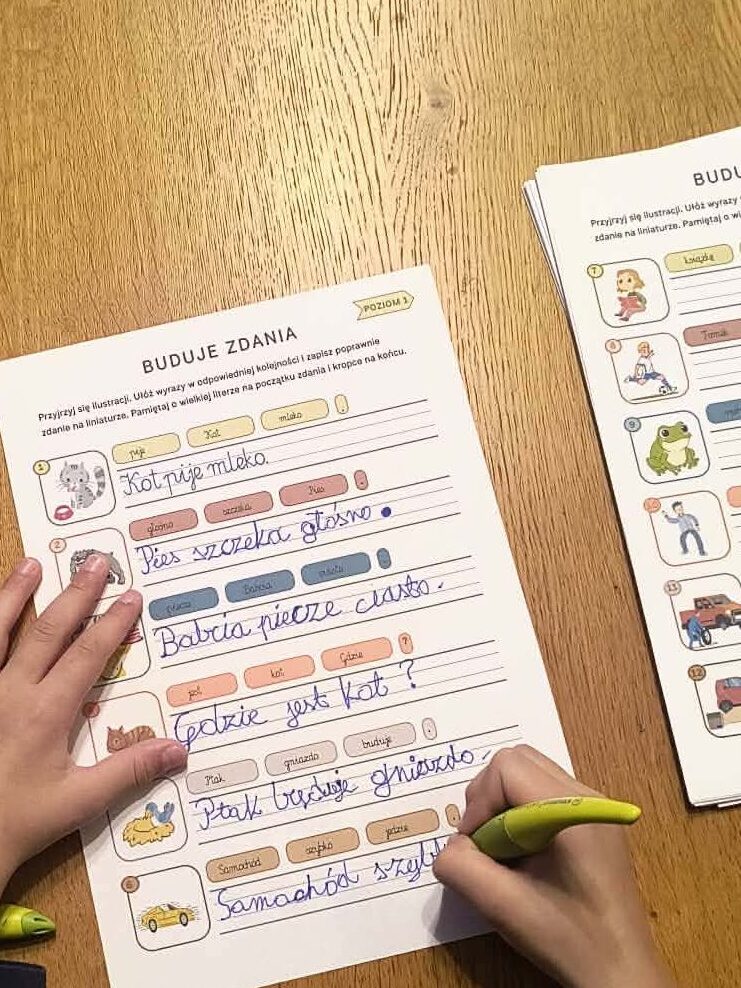 POZIOM 1
BUDUJE ZDANIA
Przyjrzyj się ilustracji. Ułóż wyrazy w odpowiedniej kolejności i zapisz poprawnie
zdanie na liniaturze. Pamiętaj o wielkiej literze na początku zdania i kropce na końcu.
1 pije Kot mleko .
Kot pije mleko.
2 głośno szczeka Pies .
Pies szczeka głośno.
piecze Babcia ciasto .
Babcia piecze ciasto.
jest kot Gdzie ?
Gdzie jest kot ?
Ptak gniazdo buduje .
Ptak buduje gniazdo.
6 Samochód szybko jedzie .
Samochód szyb
BUDU
Przyjrzyj się ilustracji. Ułóż wyrazy
zdanie na liniaturze. Pamiętaj o wi
7 książkę
8
9
10
11
12